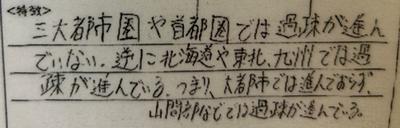 <特徴>
三大都市圏や首都圏では過疎が進ん
でいない。逆に北海道や東北、九州では過
疎が進んでいる。つまり、大都市では進んでおらず、
山間部などでは過疎が進んでいる。